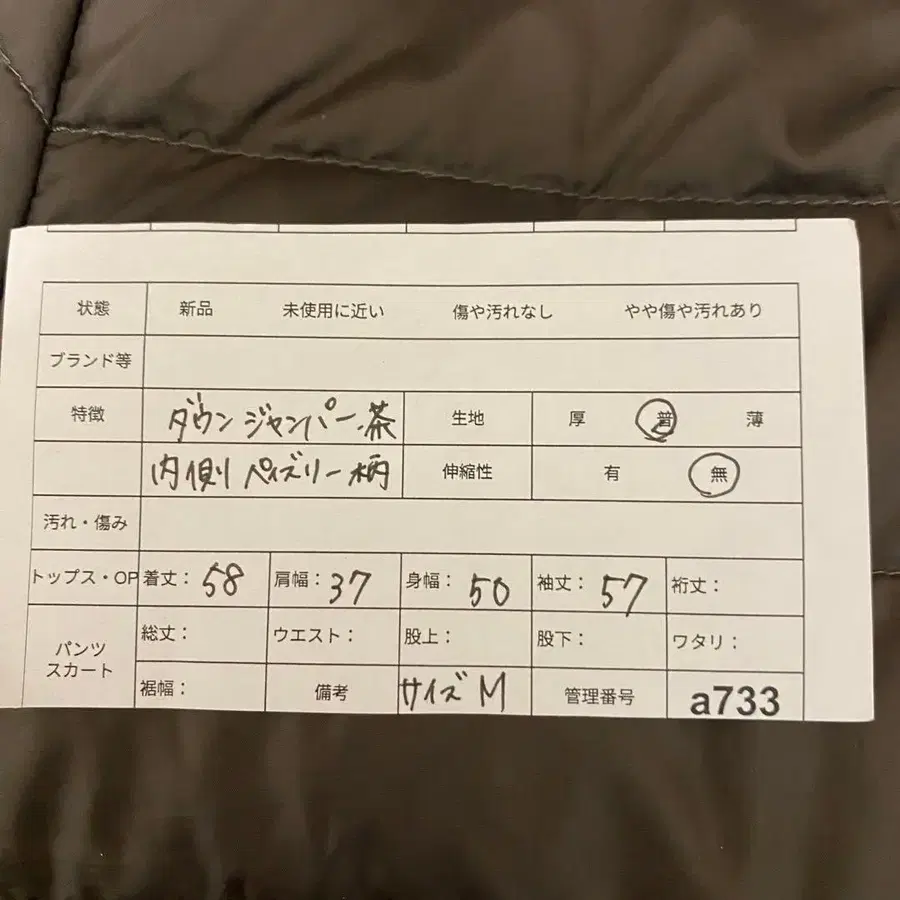 状態 新品 未使用に近い 傷や汚れなし やや傷や汚れあり
ブランド等
特徴 ダウンジャンパー.茶 生地 厚 普 薄
内側ペイズリー柄 伸縮性 有 無
汚れ・傷み
トップス・OP 着丈：58 肩幅：37 身幅：50 袖丈：57 裄丈：
パンツ スカート 総丈： ウエスト： 股上： 股下： ワタリ：
裾幅： 備考 サイズM 管理番号 a733